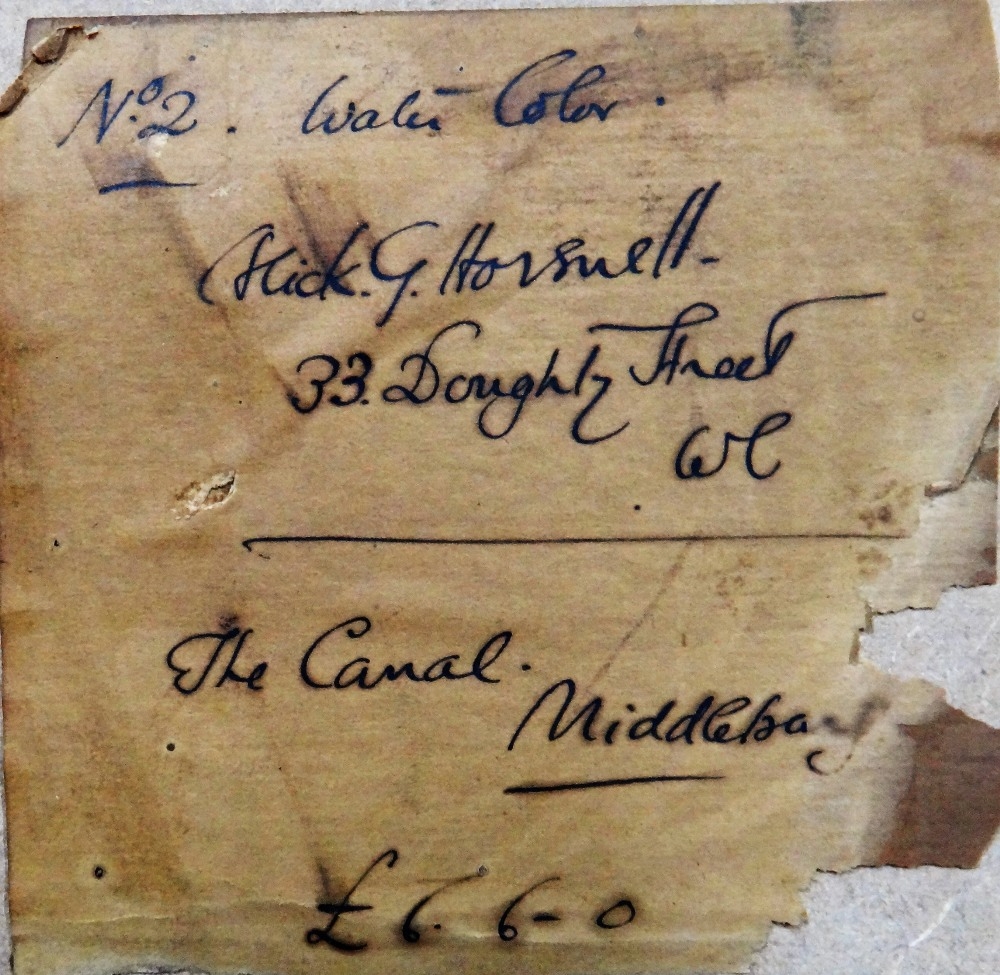 No 2. Water Color.
Mick. G. Horsnell.
33. Doughty Street
WC
The Canal.
£6. 6-0